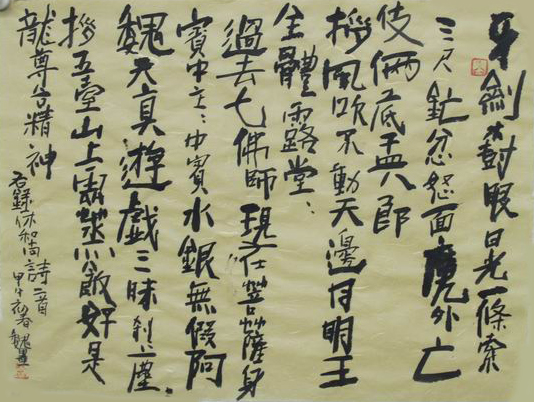 牙劍樹眼日光一條索
三尺忿怒面魔外亡
伎倆底孟八郎
風吹不動天邊月明王
全體露堂：
過去七佛師現在菩薩身
賓中主：中賓水銀無假阿
魏天真遊戲三昧刹：塵：
拶五臺山上雲蒸飯好是
龍尊台精神
右錄休和尚詩二首
甲午初春魏